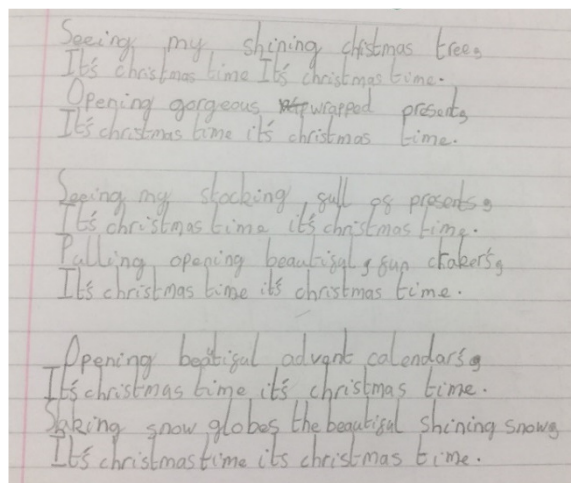 Seeing my shining christmas tree,
It's christmas time It's christmas time.
Opening gorgeous wrapped presents,
It's christmas time it's christmas time.
Seeing my stocking, full of presents,
It's christmas time it's christmas time.
Pulling opening beautiful, fun crakers,
It's christmas time it's christmas time.
Opening beatiful advant calendar's,
It's christmas time it's christmas time.
Shking snow globes the beautiful shining snow,
It's christmas time its christmas time.